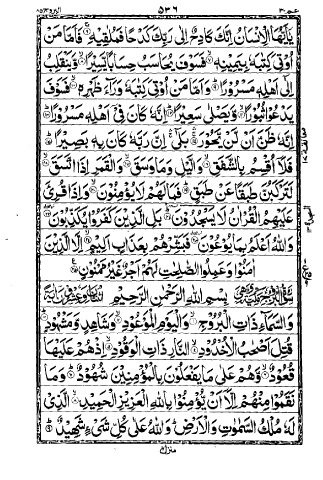 البروج ٨٥ ٥٣٦ عم ٣٠
يٰۤاَيُّهَا الْاِنْسَانُ اِنَّكَ كَادِحٌ اِلٰى رَبِّكَ كَدْحًا فَمُلٰقِيْهِ ۚ فَاَمَّا مَنْ
اُوْتِيَ كِتٰبَهٗ بِيَمِيْنِهٖ ۙ فَسَوْفَ يُحَاسَبُ حِسَابًا يَّسِيْرًا ۙ وَّيَنْقَلِبُ
اِلٰۤى اَهْلِهٖ مَسْرُوْرًا ۗ وَاَمَّا مَنْ اُوْتِيَ كِتٰبَهٗ وَرَآءَ ظَهْرِهٖ ۙ فَسَوْفَ
يَدْعُوْا ثُبُوْرًا ۙ وَّيَصْلٰى سَعِيْرًا ۗ اِنَّهٗ كَانَ فِيْۤ اَهْلِهٖ مَسْرُوْرًا ۗ
اِنَّهٗ ظَنَّ اَنْ لَّنْ يَّحُوْرَ ۚ بَلٰۤى ۚ اِنَّ رَبَّهٗ كَانَ بِهٖ بَصِيْرًا ۗ
فَلَاۤ اُقْسِمُ بِالشَّفَقِ ۙ وَالَّيْلِ وَمَا وَسَقَ ۙ وَالْقَمَرِ اِذَا اتَّسَقَ ۙ
لَتَرْكَبُنَّ طَبَقًا عَنْ طَبَقٍ ۗ فَمَا لَهُمْ لَا يُؤْمِنُوْنَ ۙ وَاِذَا قُرِئَ
عَلَيْهِمُ الْقُرْاٰنُ لَا يَسْجُدُوْنَ ۩ بَلِ الَّذِيْنَ كَفَرُوْا يُكَذِّبُوْنَ ۖ
وَاللّٰهُ اَعْلَمُ بِمَا يُوْعُوْنَ ۖ فَبَشِّرْهُمْ بِعَذَابٍ اَلِيْمٍ ۙ اِلَّا الَّذِيْنَ
اٰمَنُوْا وَعَمِلُوا الصّٰلِحٰتِ لَهُمْ اَجْرٌ غَيْرُ مَمْنُوْنٍ
بِسْمِ اللّٰهِ الرَّحْمٰنِ الرَّحِيْمِ
وَالسَّمَآءِ ذَاتِ الْبُرُوْجِ ۙ وَالْيَوْمِ الْمَوْعُوْدِ ۙ وَشَاهِدٍ وَّمَشْهُوْدٍ ۗ
قُتِلَ اَصْحٰبُ الْاُخْدُوْدِ ۙ النَّارِ ذَاتِ الْوَقُوْدِ ۙ اِذْ هُمْ عَلَيْهَا
قُعُوْدٌ ۙ وَّهُمْ عَلٰى مَا يَفْعَلُوْنَ بِالْمُؤْمِنِيْنَ شُهُوْدٌ ۗ وَمَا
نَقَمُوْا مِنْهُمْ اِلَّاۤ اَنْ يُّؤْمِنُوْا بِاللّٰهِ الْعَزِيْزِ الْحَمِيْدِ ۙ الَّذِيْ
لَهٗ مُلْكُ السَّمٰوٰتِ وَالْاَرْضِ ۗ وَاللّٰهُ عَلٰى كُلِّ شَيْءٍ شَهِيْدٌ ۗ
منزل